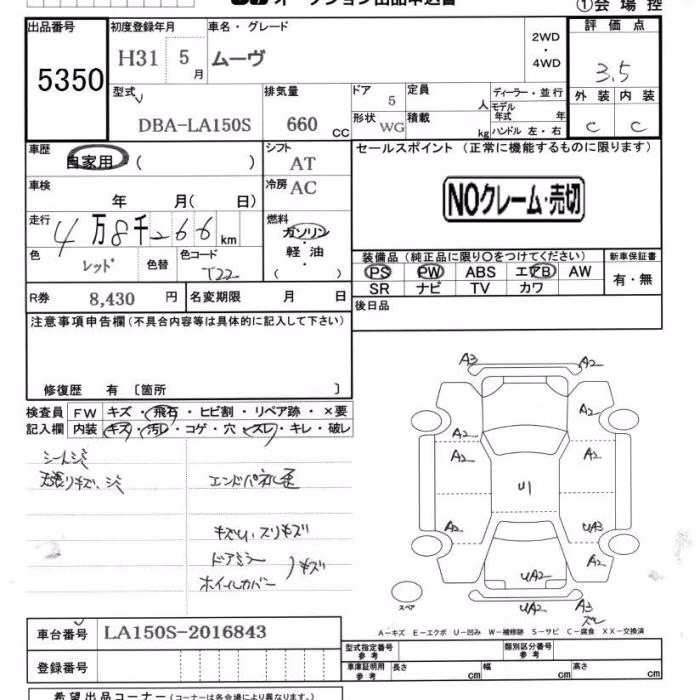 オークション出品申込書
①会場控
出品番号 初度登録年月 車名・グレード 2WD・4WD 評価点
5350 H31 5月 ムーヴ 3.5
型式 排気量 ドア 5 定員 人 ディーラー・並行 外装 内装
DBA-LA150S 660 CC 形状 WG 積載 kg モデル年式 年 ハンドル 左・右 C C
車歴 シフト セールスポイント (正常に機能するものに限ります)
自家用 ( ) AT
車検 冷房 AC NOクレーム・売切
年 月( 日)
走行 燃料
4万8千266km ガソリン
色 色替 色コード 軽油 装備品 (純正品に限り○をつけてください) 新車保証書
レッド T22 ( ) PS PW ABS エアB AW 有・無
SR ナビ TV カワ
R券 8,430 円 名変期限 月 日 後日品
注意事項申告欄(不具合内容等は具体的に記入して下さい)
修復歴 有 〔箇所 〕
検査員 FW キズ・飛石・ヒビ割・リペア跡・×要
記入欄 内装 キズ・汚レ・コゲ・穴・スレ・キレ・破レ
シートシミ
天張リキズ、シミ エンドパネル歪
キズU、スリキズ
ドアミラー
ホイールカバー
キズ
A3 A2
A2 A2
A2 A2
U1
A2 UA3
UA2 A2
UA2 A3
スレ
スペア
A-キズ E-エクボ U-凹み W-補修跡 S-サビ C-腐食 XX-交換済
車台番号 LA150S-2016843
型式指定番号 参考 類別区分番号 参考
登録番号 車庫証明用 参考 長さ cm 幅 cm 高さ cm
希望出品コーナー(コーナーは各会場により異なります。)